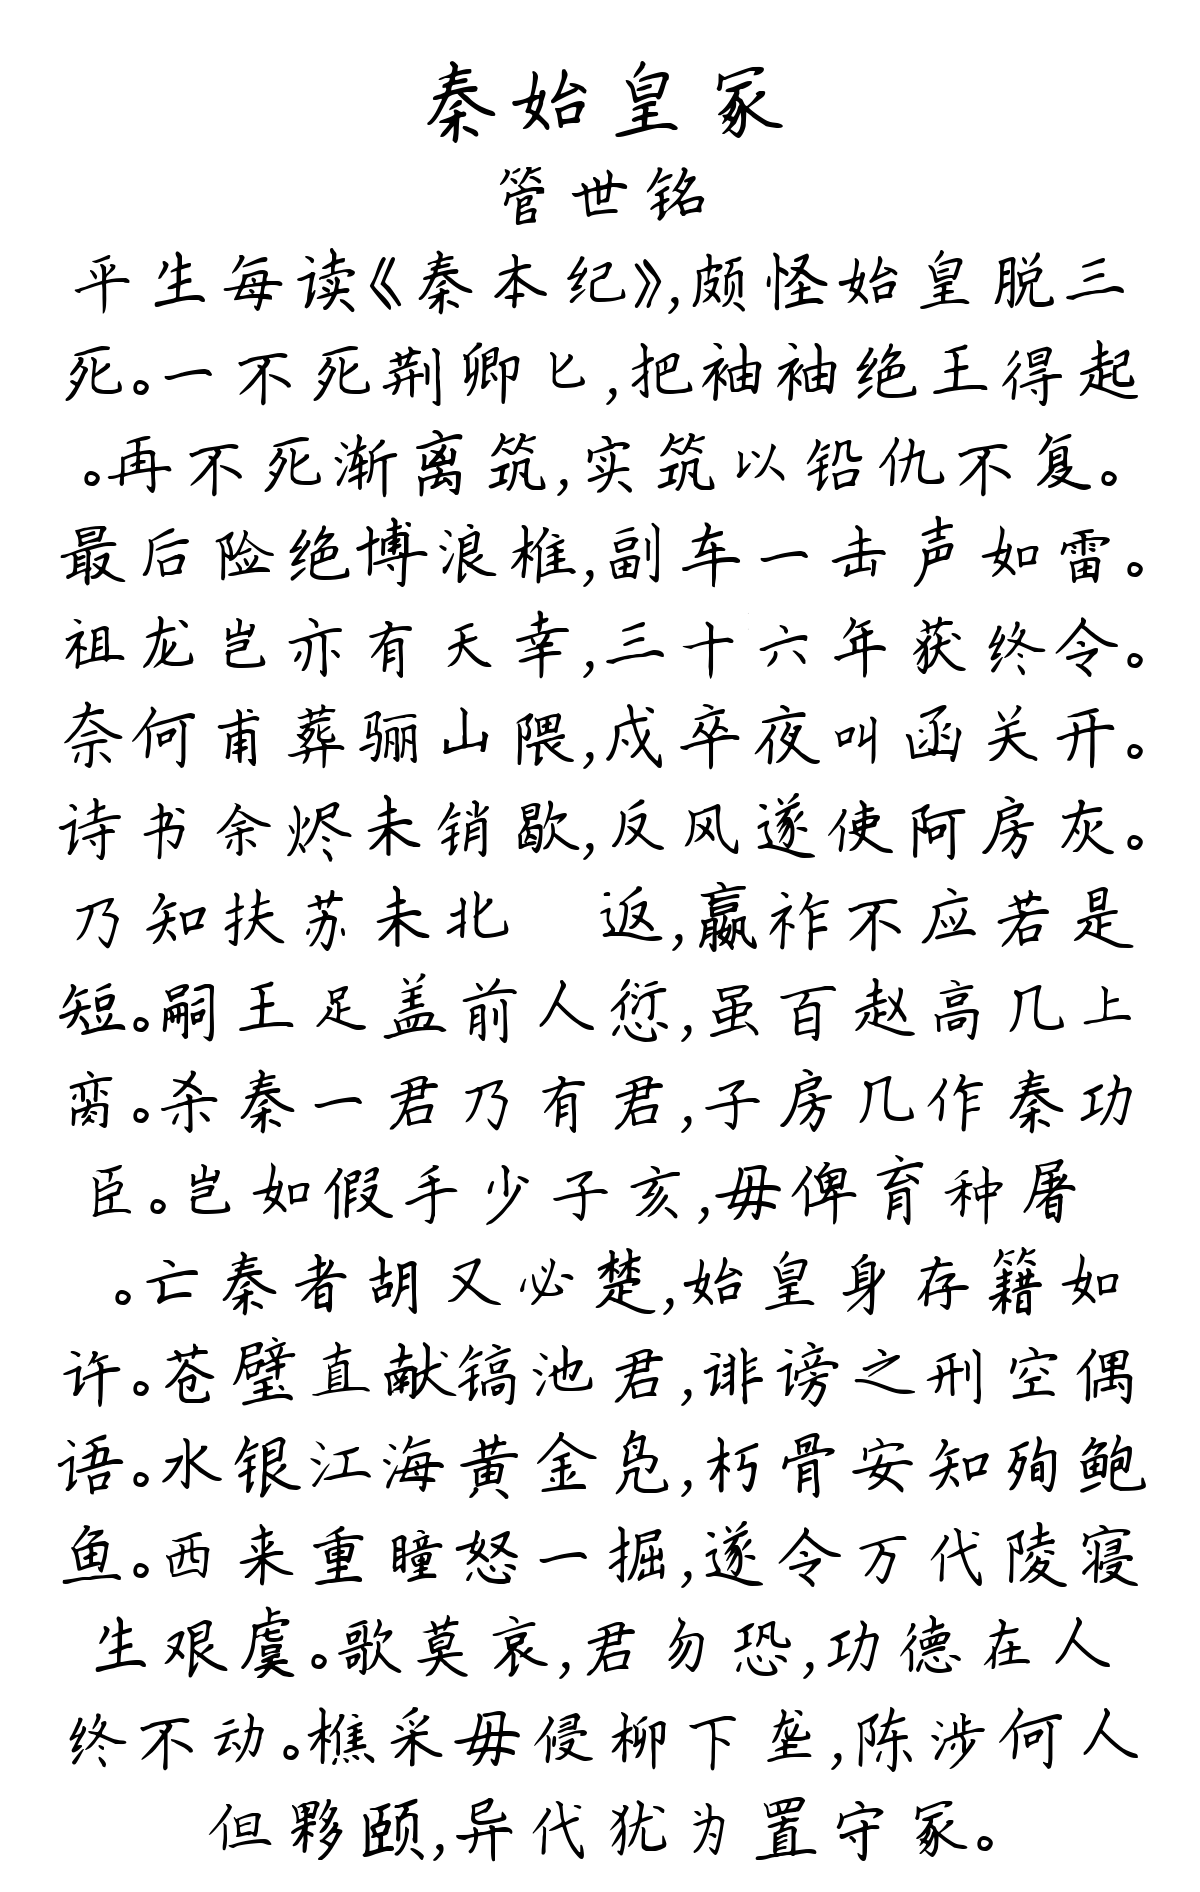 秦始皇冢
管世铭
平生每读《秦本纪》,颇怪始皇脱三
死。一不死荆卿匕,把袖袖绝王得起
。再不死渐离筑,实筑以铅仇不复。
最后险绝博浪椎,副车一击声如雷。
祖龙岂亦有天幸,三十六年获终令。
奈何甫葬骊山隈,戍卒夜叫函关开。
诗书余烬未销歇,反风遂使阿房灰。
乃知扶苏未北 返,嬴祚不应若是
短。嗣王足盖前人愆,虽百赵高几上
脔。杀秦一君乃有君,子房几作秦功
臣。岂如假手少子亥,毋俾育种屠
。亡秦者胡又必楚,始皇身存籍如
许。苍璧直献镐池君,诽谤之刑空偶
语。水银江海黄金凫,朽骨安知殉鲍
鱼。西来重瞳怒一掘,遂令万代陵寝
生艰虞。歌莫哀,君勿恐,功德在人
终不动。樵采毋侵柳下垄,陈涉何人
但夥颐,异代犹为置守冢。